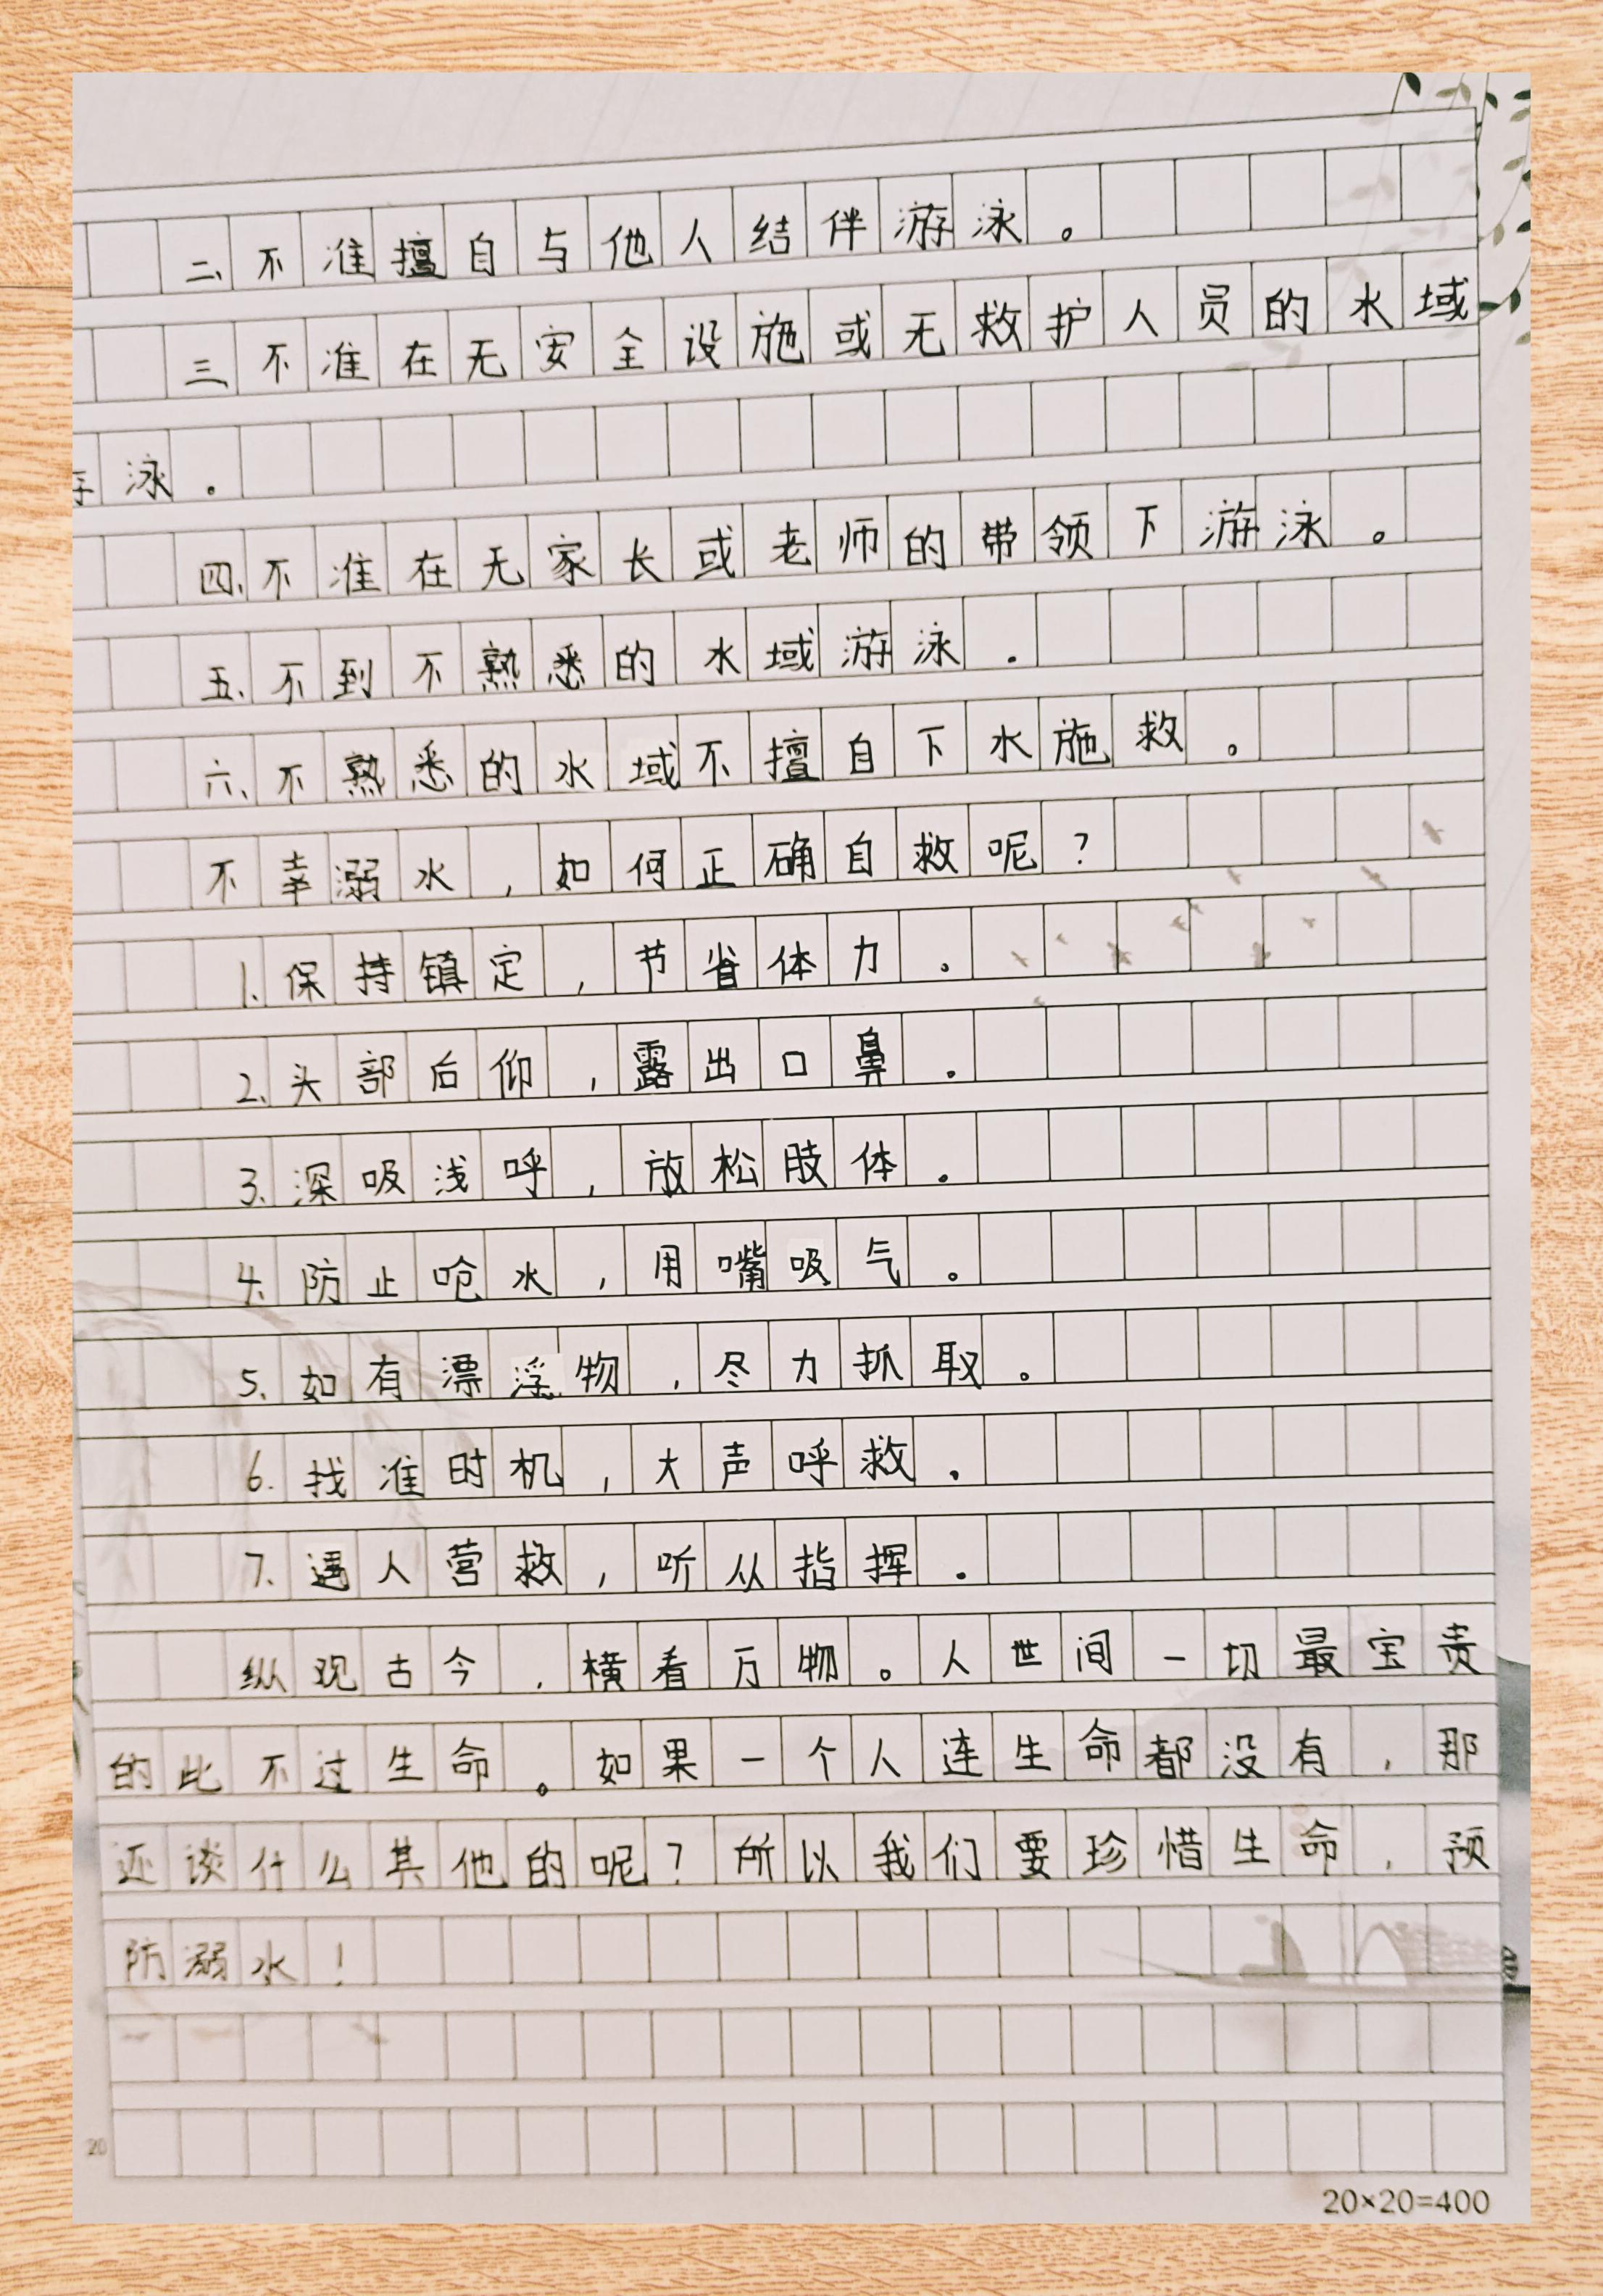 二、不准擅自与他人结伴游泳。
三、不准在无安全设施或无救护人员的水域
泳。
四、不准在无家长或老师的带领下游泳。
五、不到不熟悉的水域游泳.
六、不熟悉的水域不擅自下水施救。
不幸溺水,如何正确自救呢?
1.保持镇定,节省体力。
2、头部后仰,露出口鼻.
3、深吸浅呼,放松肢体.
4、防止呛水,用嘴吸气。
5、如有漂浮物,尽力抓取。
6.找准时机,大声呼救.
7、遇人营救,听从指挥.
纵观古今,横看万物。人世间一切最宝贵
的此不过生命。如果一个人连生命都没有,那
还谈什么其他的呢?所以我们要珍惜生命,预
防溺水!
20
20×20=400